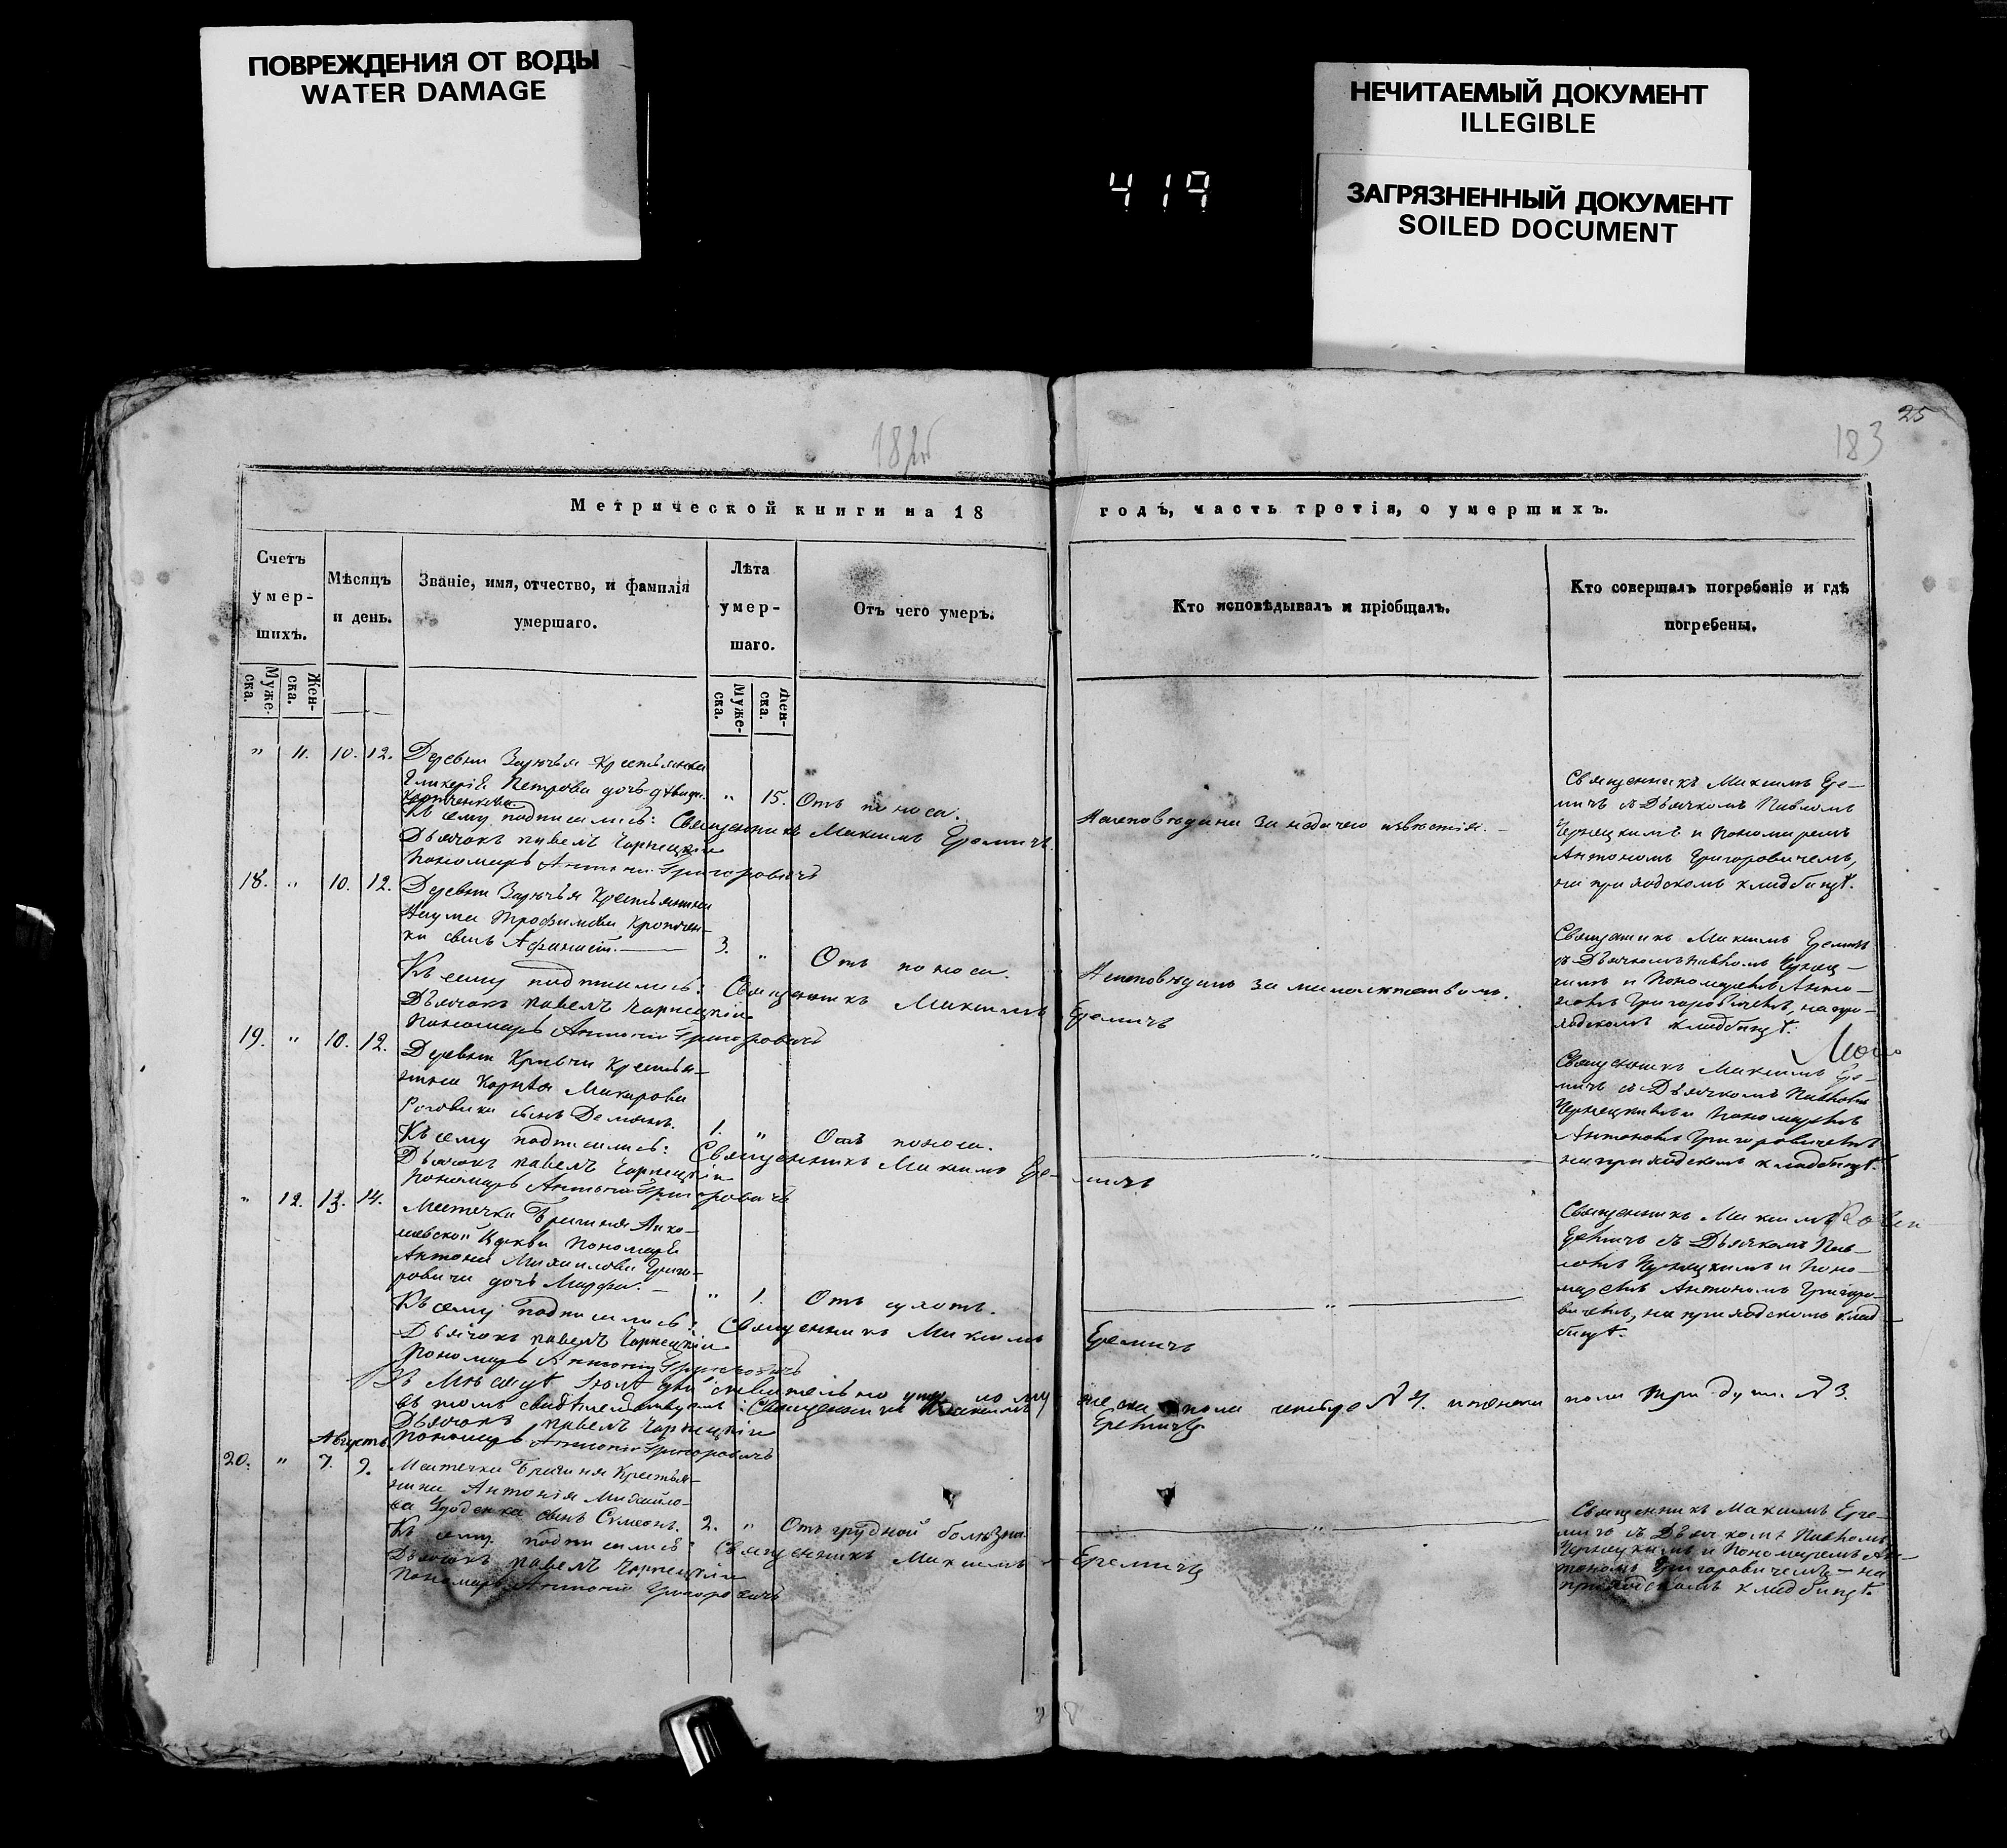 ПОВРЕЖДЕНИЯ ОТ ВОДЫ
WATER DAMAGE
НЕЧИТАЕМЫЙ ДОКУМЕНТ
ILLEGIBLE
ЗАГРЯЗНЕННЫЙ ДОКУМЕНТ
SOILED DOCUMENT
419
25
183
Метрической книги на 18
годъ, часть третія, о умершихъ.
Счетъ
умер-
шихъ.
Муже-
ска.
Жен-
ска.
Мѣсяцъ
и день.
Званіе, имя, отчество, и фамилія
умершаго.
Лѣта
умер-
шаго.
Муже-
ска.
Жен-
ска.
Отъ чего умеръ.
Кто исповѣдывалъ и пріобщалъ.
Кто совершалъ погребеніе и гдѣ
погребены.
" 11. 10. 12. Деревни Крестьянка
Гликерія Петрова дочь
" 15. Отъ поноса.
Къ сему подписались: Священникъ Максимъ Еремичъ
Дьячокъ Павелъ Чарнецкій
Пономарь Антоній Григоровичъ
Священникъ Максимъ Ере-
мичъ съ Дьячкомъ Павломъ
Чернецкимъ и Пономаремъ
Антономъ Григоровичемъ,
на приходскомъ кладбищѣ.
18. " 10. 12. Деревни Крестьянина
Наума Трофимова
сынъ Афанасій.
3. " Отъ поноса.
Къ сему подписались: Священникъ Максимъ Еремичъ
Дьячокъ Павелъ Чарнецкій
Пономарь Антоній Григоровичъ
Священникъ Максимъ Еремичъ
съ Дьячкомъ Павломъ Чернец-
кимъ и Пономаремъ Анто-
номъ Григоровичемъ, на при-
ходскомъ кладбищѣ.
19. " 10. 12. Деревни Крестья-
нина Корнѣя Макарова
сынъ Демьянъ.
1. " Отъ поноса.
Къ сему подписались: Священникъ Максимъ Еремичъ
Дьячокъ Павелъ Чарнецкій
Пономарь Антоній Григоровичъ
Священникъ Максимъ Ере-
мичъ съ Дьячкомъ Павломъ
Чернецкимъ и Пономаремъ
Антономъ Григоровичемъ
на приходскомъ кладбищѣ.
" 12. 13. 14. Местечка Брагиня Нико-
лаевской Церкви Пономаря
Антонія Михайлова Григо-
ровича дочь Марфа.
" 1. Отъ
Къ сему подписались: Священникъ Максимъ Еремичъ
Дьячокъ Павелъ Чарнецкій
Пономарь Антоній Григоровичъ
Священникъ Максимъ
Еремичъ съ Дьячкомъ Пав-
ломъ Чернецкимъ и Поно-
маремъ Антономъ Григоро-
вичемъ, на приходскомъ клад-
бищѣ.
Въ Мѣсяцѣ Іюлѣ
въ томъ свидѣтельствуемъ: Священникъ Максимъ Еремичъ
Дьячокъ Павелъ Чарнецкій
Пономарь Антоній Григоровичъ
Августъ
20. " 7. 9. Местечка Брагиня Крестья-
нина Антонія Михайло-
ва сынъ Сумеонъ.
2. " Отъ грудной болѣзни
Къ сему подписались: Священникъ Максимъ Еремичъ
Дьячокъ Павелъ Чарнецкій
Пономарь Антоній Григоровичъ
Священникъ Максимъ Ере-
мичъ съ Дьячкомъ Павломъ
Чернецкимъ и Пономаремъ Ан-
тономъ Григоровичемъ на
приходскомъ кладбищѣ.